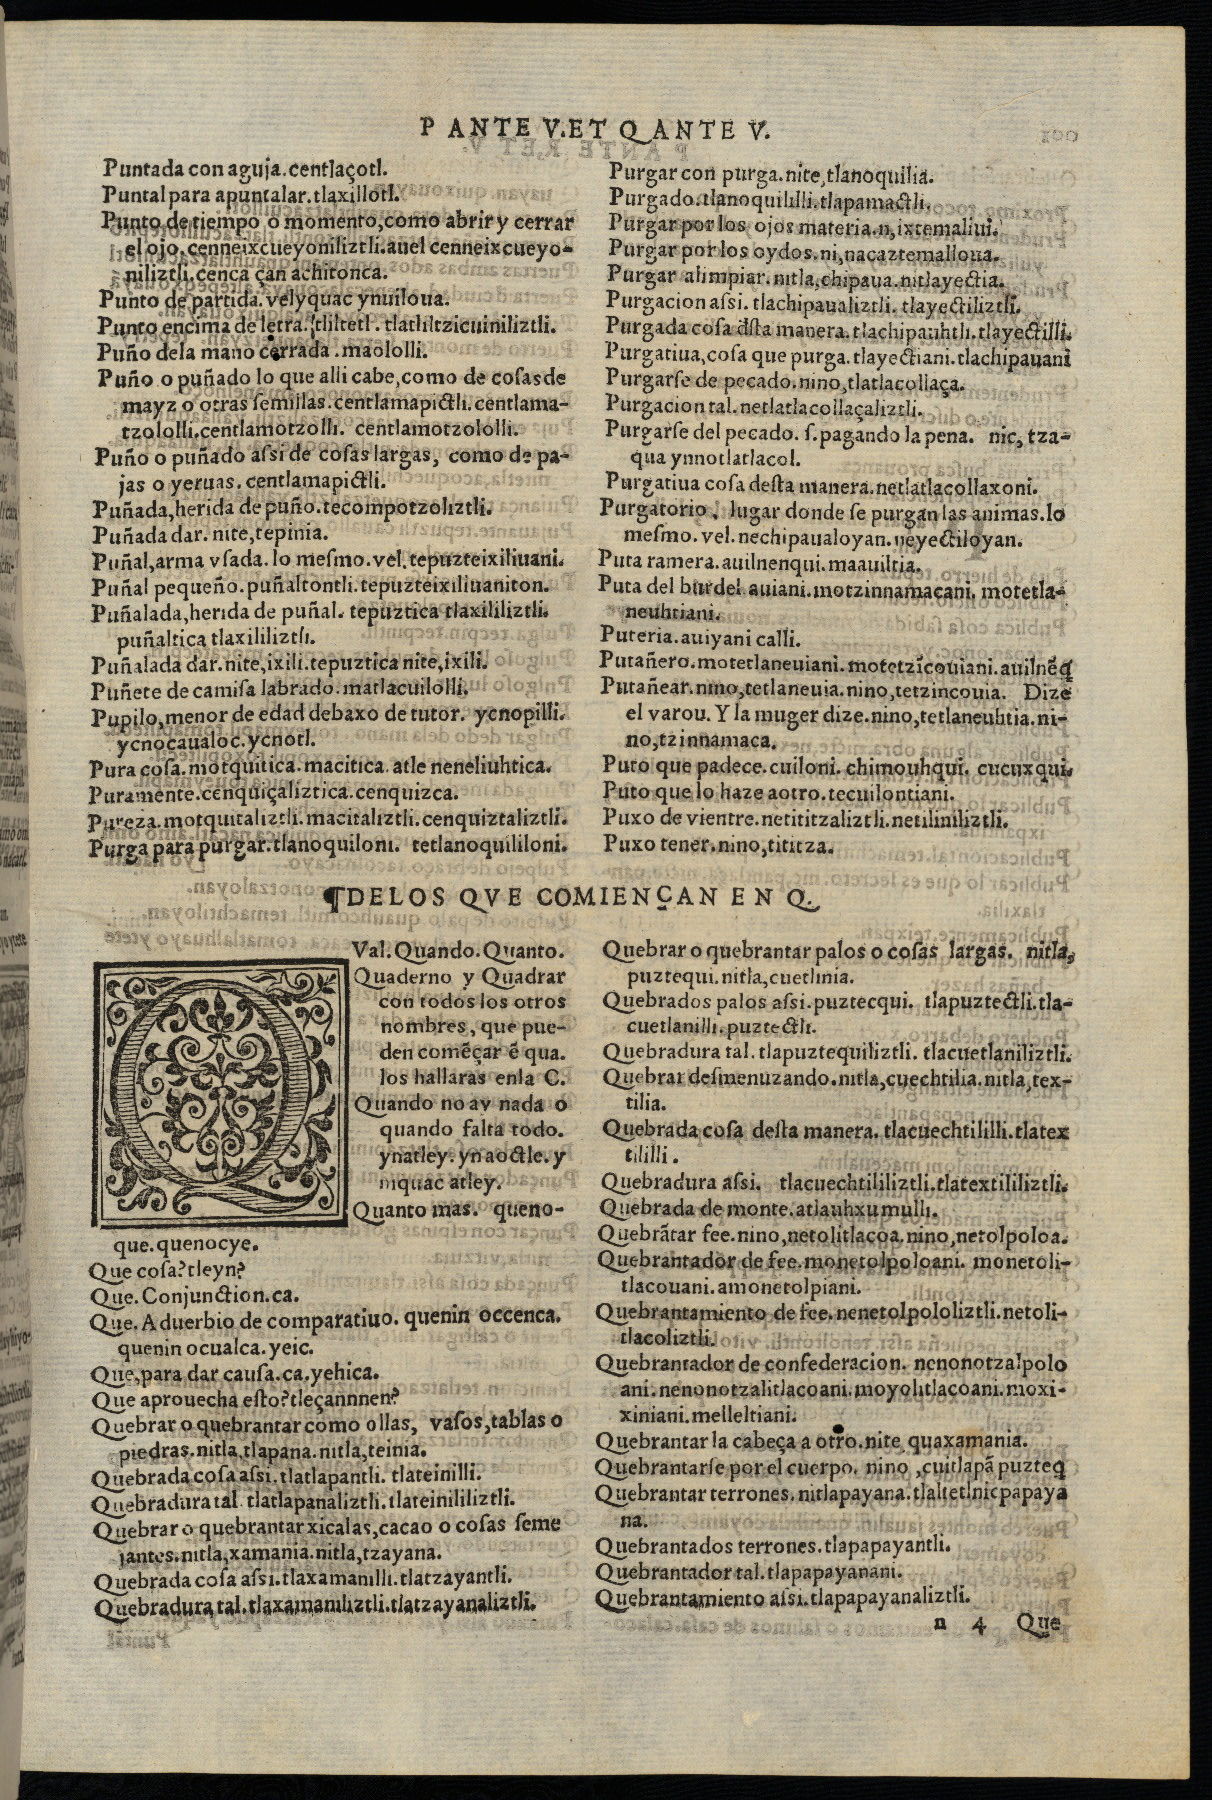 P ANTE V. ET Q ANTE V.
Puntada con aguja. centlaçotl.
Puntal para apuntalar. tlaxillotl.
Punto de tiempo o momento, como abrir y cerrar
el ojo. cenneixcueyoniliztli. auel cenneixcueyo-
niliztli. cenca çan achitonca.
Punto de partida. velyquac ynuiloua.
Punto encima de letra. tliltetl. tlatliltzicuiniliztli.
Puño dela mano cerrada. maololli.
Puño o puñado lo que alli cabe, como de cosas de
mayz o otras semillas. centlamapictli. centlama-
tzololli. centlamotzolli. centlamotzololli.
Puño o puñado assi de cosas largas, como de pa-
jas o yeruas. centlamapictli.
Puñada, herida de puño. tecompotzoliztli.
Puñada dar. nite, tepinia.
Puñal, arma vsada. lo mesmo. vel. tepuzteixiliuani.
Puñal pequeño. puñaltontli. tepuzteixiliuaniton.
Puñalada, herida de puñal. tepuztica tlaxililiztli.
puñaltica tlaxililiztli.
Puñalada dar. nite, ixili. tepuztica nite, ixili.
Puñete de camisa labrado. matlacuilolli.
Pupilo, menor de edad debaxo de tutor. ycnopilli.
ycnocaualoc. ycnotl.
Pura cosa. motquitica. macitica. atle neneliuhtica.
Puramente. cenquiçaliztica. cenquizca.
Pureza. motquitaliztli. macitaliztli. cenquiztaliztli.
Purga para purgar. tlanoquiloni. tetlanoquililoni.
Purgar con purga. nite, tlanoquilia.
Purgado. tlanoquililli. tlapamactli.
Purgar por los ojos materia. n, ixtemaliui.
Purgar por los oydos. ni, nacaztemalloua.
Purgar alimpiar. nitla, chipaua. nitlayectia.
Purgacion assi. tlachipaualiztli. tlayectiliztli.
Purgada cosa dsta manera. tlachipauhtli. tlayectilli.
Purgatiua, cosa que purga. tlayectiani. tlachipauani
Purgarse de pecado. nino, tlatlacollaça.
Purgacion tal. netlatlacollaçaliztli.
Purgarse del pecado. s. pagando la pena. nic, tza-
qua ynnotlatlacol.
Purgatiua cosa desta manera. netlatlacollaxoni.
Purgatorio, lugar donde se purgan las animas. lo
mesmo. vel. nechipaualoyan. neyectiloyan.
Puta ramera. auilnenqui. maauiltia.
Puta del burdel. auiani. motzinnamacani. motetla-
neuhtiani.
Puteria. auiyani calli.
Putañero. motetlaneuiani. motetzĩcouiani. auilnẽq̃
Putañear. nino, tetlaneuia. nino, tetzincouia. Dize
el varou. Y la muger dize. nino, tetlaneuhtia. ni-
no, tzinnamaca.
Puto que padece. cuiloni. chimouhqui. cucuxqui.
Puto que lo haze aotro. tecuilontiani.
Puxo de vientre. netititzaliztli. netiliniliztli.
Puxo tener. nino, tititza.
¶DELOS QVE COMIENÇAN EN Q.
QVal. Quando. Quanto.
Quaderno y Quadrar
con todos los otros
nombres, que pue-
den comẽçar ẽ qua.
los hallaras enla C.
Quando no ay nada o
quando falta todo.
ynatley. ynaoctle. y
niquac atley.
Quanto mas. queno-
que. quenocye.
Que cosa? tleyn?
Que. Conjunction. ca.
Que. Aduerbio de comparatiuo. quenin occenca.
quenin ocualca. yeic.
Que, para dar causa. ca. yehica.
Que aprouecha esto? tleçannnen?
Quebrar o quebrantar como ollas, vasos, tablas o
piedras. nitla, tlapana. nitla, teinia.
Quebrada cosa assi. tlatlapantli. tlateinilli.
Quebradura tal. tlatlapanaliztli. tlateinililiztli.
Quebrar o quebrantar xicalas, cacao o cosas seme
jantes. nitla, xamania. nitla, tzayana.
Quebrada cosa assi. tlaxamanilli. tlatzayantli.
Quebradura tal. tlaxamaniliztli. tlatzayanaliztli.
Quebrar o quebrantar palos o cosas largas. nitla,
puztequi. nitla, cuetlinia.
Quebrados palos assi. puztecqui. tlapuztectli. tla-
cuetlanilli. puztectli.
Quebradura tal. tlapuztequiliztli. tlacuetlaniliztli.
Quebrar desmenuzando. nitla, cuechtilia. nitla, tex-
tilia.
Quebrada cosa desta manera. tlacuechtililli. tlatex
tililli.
Quebradura assi. tlacuechtililiztli. tlatextililiztli.
Quebrada de monte. atlauhxumulli.
Quebrãtar fee. nino, netolitlacoa. nino, netolpoloa.
Quebrantador de fee. monetolpoloani. monetoli-
tlacouani. amonetolpiani.
Quebrantamiento de fee. nenetolpololiztli. netoli-
tlacoliztli.
Quebrantador de confederacion. nenonotzalpolo
ani. nenonotzalitlacoani. moyolitlacoani. moxi-
xiniani. melleltiani.
Quebrantar la cabeça a otro. nite quaxamania.
Quebrantarse por el cuerpo. nino, cuitlapã puzteq̃
Quebrantar terrones. nitlapayana. tlaltetlnicpapaya
na.
Quebrantados terrones. tlapapayantli.
Quebrantador tal. tlapapayanani.
Quebrantamiento assi. tlapapayanaliztli.
n 4 Que